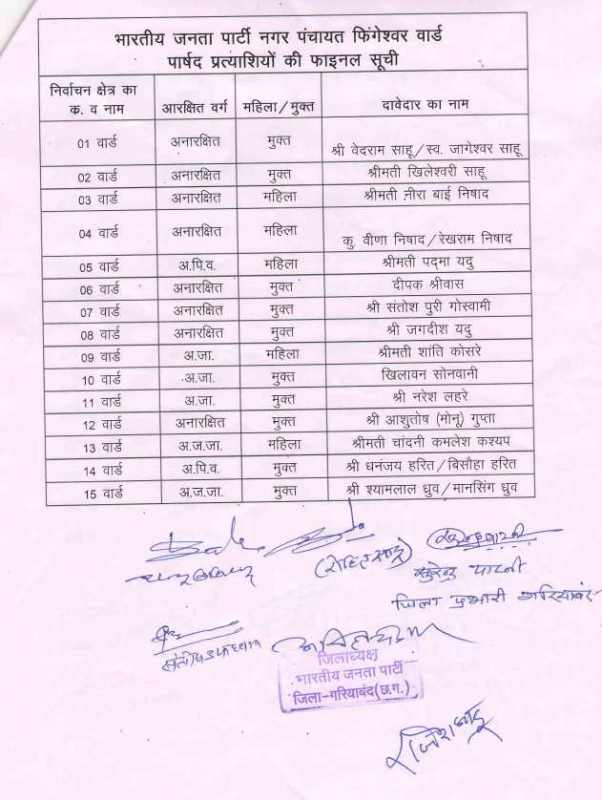 भारतीय जनता पार्टी नगर पंचायत फिंगेश्वर वार्ड
पार्षद प्रत्याशियों की फाइनल सूची
निर्वाचन क्षेत्र का क. व नाम आरक्षित वर्ग महिला/मुक्त दावेदार का नाम
01 वार्ड अनारक्षित मुक्त श्री वेदराम साहू/स्व. जागेश्वर साहू
02 वार्ड अनारक्षित मुक्त श्रीमती खिलेश्वरी साहू
03 वार्ड अनारक्षित महिला श्रीमती नीरा बाई निषाद
04 वार्ड अनारक्षित महिला कु. वीणा निषाद/रेखराम निषाद
05 वार्ड अ.पि.व. महिला श्रीमती पद्मा यदु
06 वार्ड अनारक्षित मुक्त दीपक श्रीवास
07 वार्ड अनारक्षित मुक्त श्री संतोश पुरी गोस्वामी
08 वार्ड अनारक्षित मुक्त श्री जगदीश यदु
09 वार्ड अ.जा. महिला श्रीमती शांति कोसरे
10 वार्ड अ.जा. मुक्त खिलावन सोनवानी
11 वार्ड अ.जा. मुक्त श्री नरेश लहरे
12 वार्ड अनारक्षित मुक्त श्री आशुतोष (मोनू) गुप्ता
13 वार्ड अ.ज.जा. महिला श्रीमती चांदनी कमलेश कश्यप
14 वार्ड अ.पि.व. मुक्त श्री धनंजय हरित/बिसौहा हरित
15 वार्ड अ.ज.जा. मुक्त श्री श्यामलाल ध्रुव/मानसिंग ध्रुव
जिला प्रभारी गरियाबंद
जिलाध्यक्ष
भारतीय जनता पार्टी
जिला-गरियाबंद(छ.ग.)